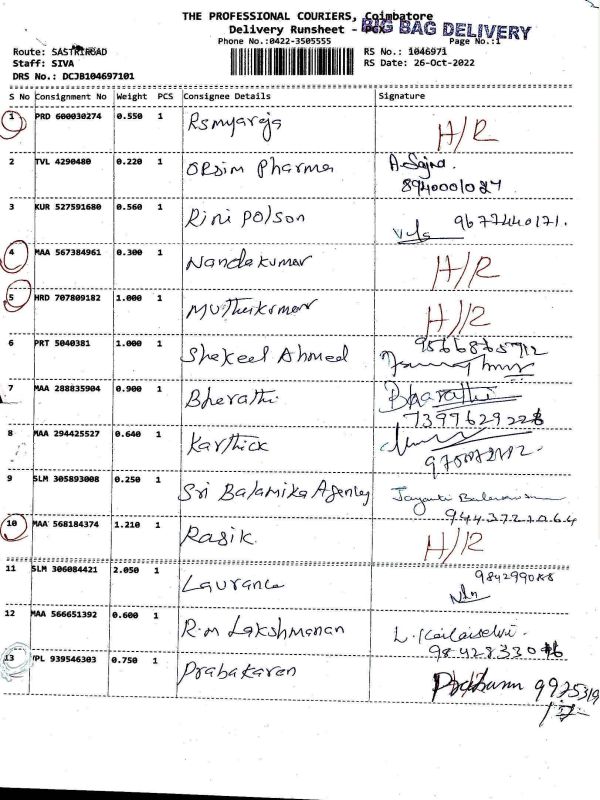 THE PROFESSIONAL COURIERS, Coimbatore
Delivery Runsheet - PCX BIG BAG DELIVERY
Phone No.:0422-3505555 Page No.:1
Route: SASTRIROAD RS No.: 1046971
Staff: SIVA RS Date: 26-Oct-2022
DRS No.: DCJB104697101
S No Consignment No Weight PCS Consignee Details Signature
1 PRD 600030274 0.550 1 Rsmyaraja H/R
2 TVL 4290480 0.220 1 Orsim Pharma A. Sajna.
8940001027
3 KUR 527591680 0.560 1 Rini Polson 9677440171.
4 MAA 567384961 0.300 1 Nandakumar H/R
5 HRD 707809182 1.000 1 Muthukumar H/R
6 PRT 5040381 1.000 1 Shakeel Ahmed 9566865712
7 MAA 288835904 0.900 1 Bharathi Bharathi
7399629228
8 MAA 294425527 0.640 1 Karthick
9 SLM 305893008 0.250 1 Sri Balamika Agency
9443727064
10 MAA 568184374 1.210 1 Rasik H/R
11 SLM 306084421 2.050 1 Laurance
12 MAA 566651392 0.600 1 R.M Lakshmanan L. Kalaiselvi.
13 VPL 939546303 0.750 1 Prabakaran 9975319